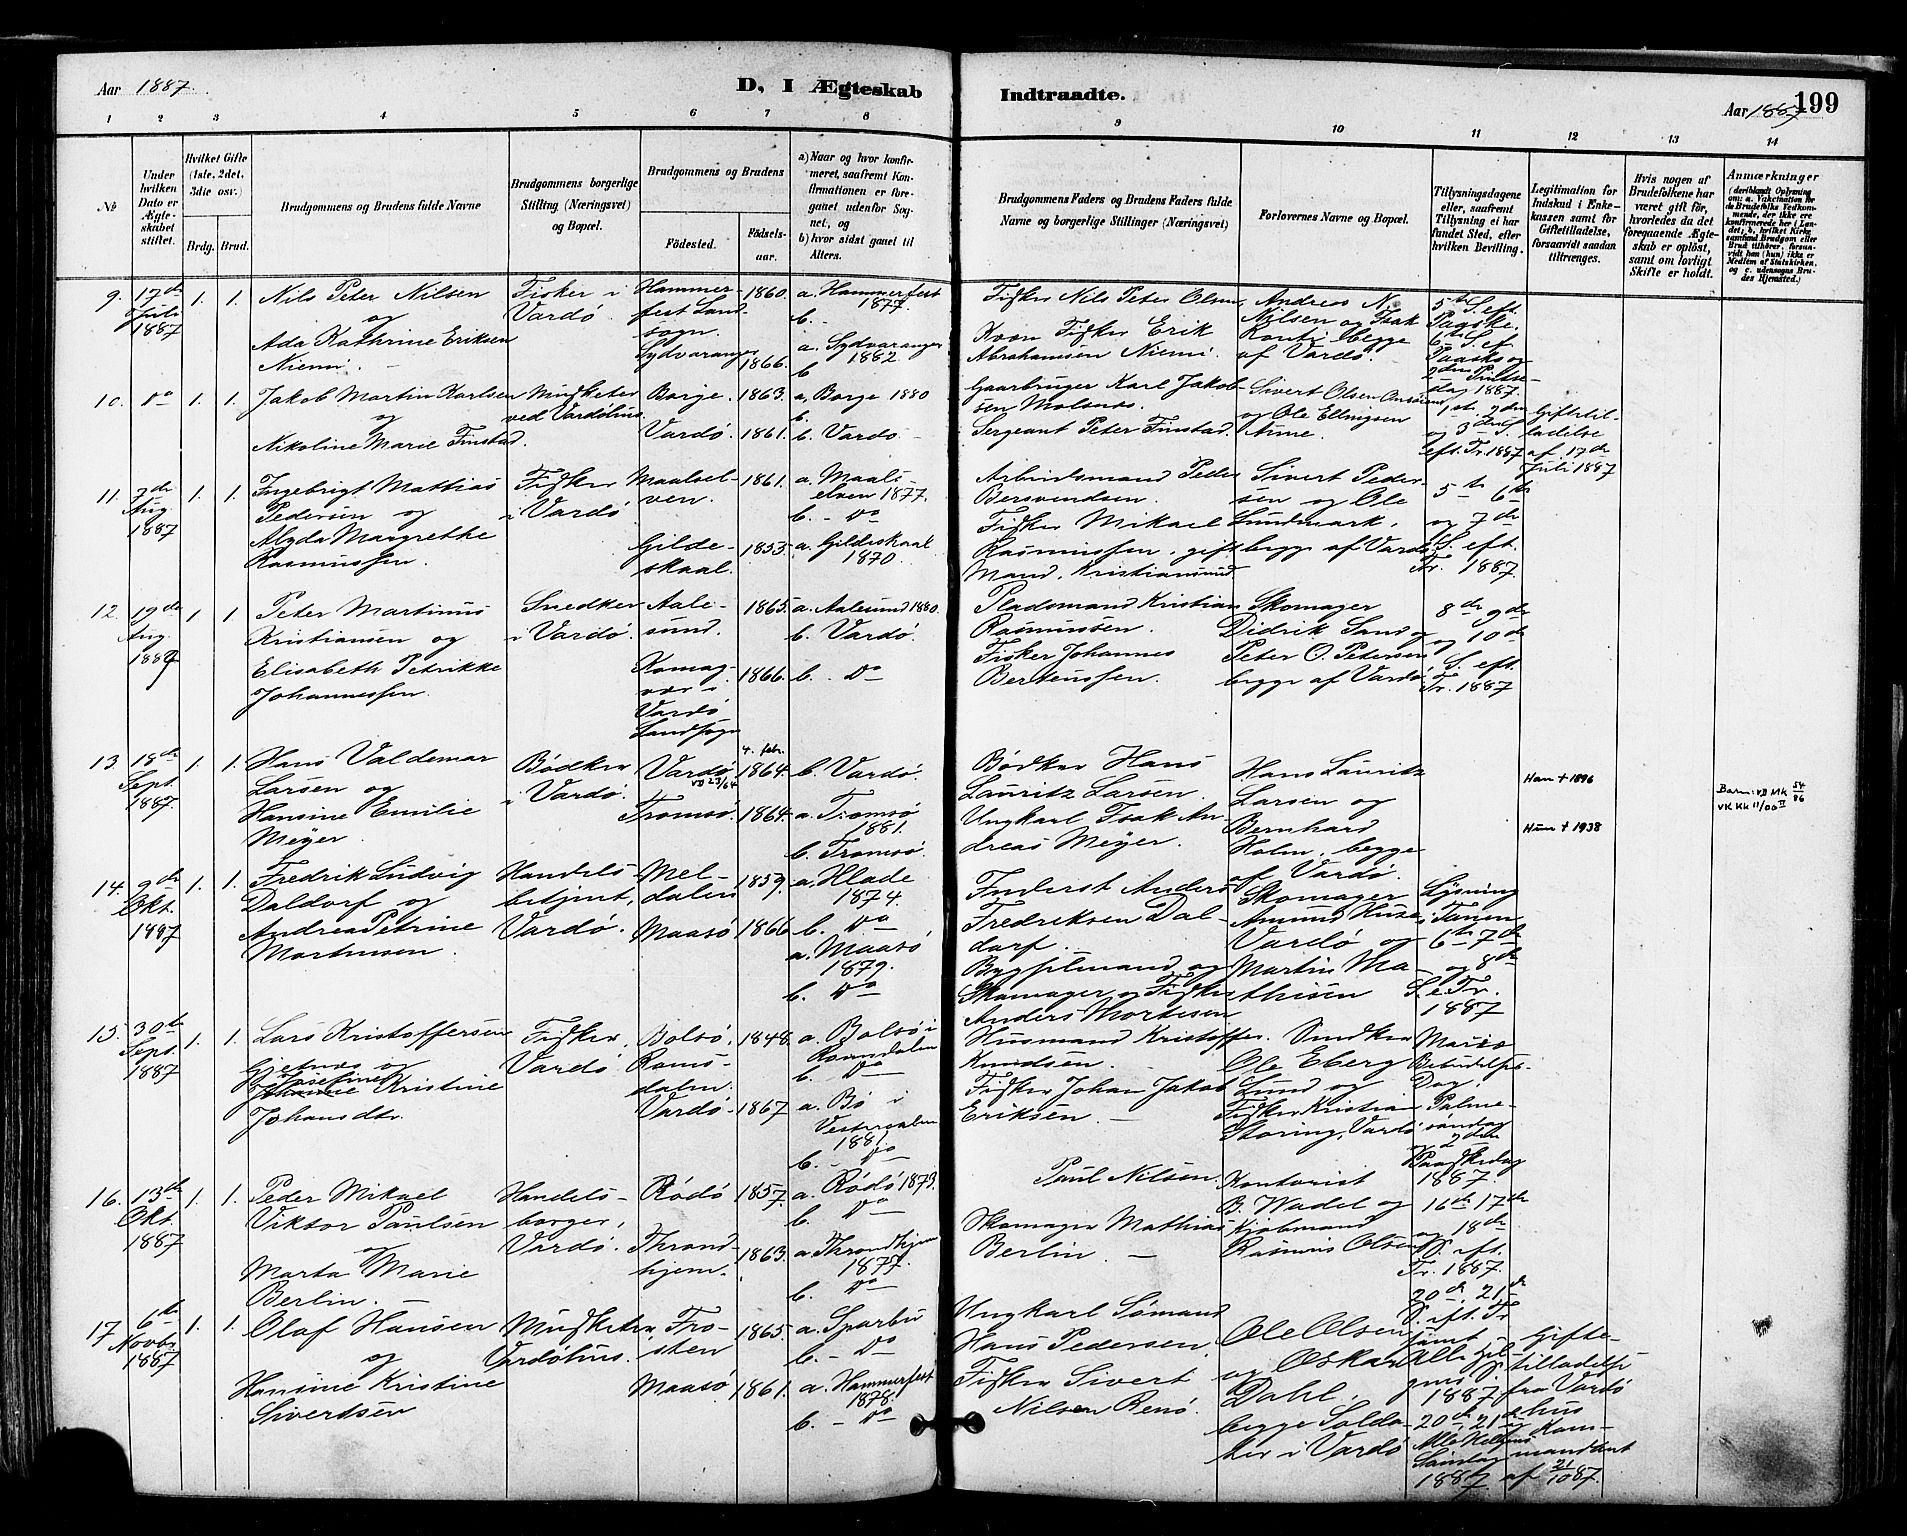 Aar 1887.
D, I Ægteskab Indtraadte.
Aar 1887 199
1 2 3 4 5 6 7 8 9 10 11 12 13 14
№
Under hvilken Dato er Ægteskabet stiftet.
Hvilket Gifte (1ste, 2det, 3die osv.)
Brdg. Brud.
Brudgommens og Brudens fulde Navne
Brudgommens borgerlige Stilling (Næringsvei) og Bopæl.
Brudgommens og Brudens
Fødested.
Fødselsaar.
a) Naar og hvor konfirmeret, saafremt Konfirmationen er foregaaet udenfor Sognet, og
b) hvor sidst gaaet til Alters.
Brudgommens Faders og Brudens Faders fulde Navne og borgerlige Stillinger (Næringsvei)
Forlovernes Navne og Bopæl.
Tillysningsdagene eller, saafremt Tillysning ei har fundet Sted, efter hvilken Bevilling.
Legitimation for Indskud i Enkekassen samt for Giftetilladelse, forsaavidt saadan tiltrænges.
Hvis nogen af Brudefolkene har været gift før, hvorledes da det foregaaende Ægteskab er opløst, samt om lovligt Skifte er holdt.
Anmærkninger
9. 17de Juli 1887 1. 1.
Nils Peter Nilsen
og
Ada Kathrine Eriksen
Niemi. –
Fisker i
Vardø.
Hammerfest Landsogn. 1860.
Sydvaranger 1866.
a. Hammerfest
1877.
b. –
a. Sydvaranger
1882
b
Fisker Nils Peter Olsen
Kvæn Fisker Erik
Abrahamsen Niemi.
Andreas N.
Nilsen og Isak
Konti begge
af Vardø.
5te S. eft.
Paaske.
6te S. ef.
Paaske og
2den Pintsedag 1887.
10. do 1. 1.
Jakob Martin Karlsen
og
Nikoline Marie Finstad.
Musketer
ved Vardøhus.
Borge. 1863.
Vardø. 1861.
a, Borge 1880
b.
b. Vardø –
Gaarbruger Karl Jakobsen
Sergeant Peter Finstad.
Sivert Olsen
og Ole Ellingsen
Aune.
1ste 2den
og 3die S.
eft. Tr. 1887
Giftetilladelse
af 17de
Juli 1887
11. 7de Aug. 1887 1. 1.
Ingebrigt Mathias
Pedersen og
Alyda Margrethe
Rasmussen.
Fisker
i Vardø
Maalselven. 1861.
Gildeskaal. 1853.
a. Maalselven 1877.
b. – do
a. Gildeskaal
1870.
Arbeidsmand Peder
Bersvendsen.
Fisker Mikael
Rasmussen, gift
Mand, Kristiansund
Sivert Pedersen og Ole
Lundmark,
begge af Vardø
5te 6te
og 7de
S. eft.
Tr. 1887.
12. 19de Aug. 1887 1 1
Peter Martinus
Kristiansen og
Elisabeth Petrikke
Johannessen.
Snedker
i Vardø.
Aalesund. 1865.
Komagvær i
Vardø
Landsogn 1866.
a. Aalesund 1880.
b. Vardø.
b. – do
Pladsmand Kristian
Rasmussen.
Fisker Johannes
Berteussen.
Skomager
Didrik Sand og
Peter O. Petersen
begge af Vardø
8de 9de
og 10de
S. eft.
Tr. 1887
13. 18de Sept. 1887. 1. 1.
Hans Valdemar
Larsen og
Hansine Emilie
Meÿer.
Bødker
i Vardø.
Vardø
VD 23/64
4. febr.
1864.
Tromsø. 1864.
b. Vardø.
a. Tromsø
1881.
b. Tromsø.
Bødker Hans
Lauritz Larsen.
Ungkarl Isak Andreas Meÿer.
Hans Lauritz
Larsen og
Bernhard
Holm, begge
af Vardø.
Ham † 1896
Hun † 1938
Barn: VD MK 54/86
VK KK 11/00 II
14. 9de Okt. 1887 1. 1.
Fredrik Ludvig
Daldorf og
Andrea Petrine
Mortensen.
Handelsbetjent,
Vardø.
Meldalen 1859.
Maasø 1866
a. Hlade
1874.
b. do
a. Maasø
1879.
b. do
Inderst Anders
Fredriksen Daldorf.
Bygselmand og
Skomager og Fisker
Anders Mortesen
Skomager
Amund Huse
Vardø og
Martin Mathisen
Lysning
i Tanen
6te 7de
og 8de
S. e. Tr.
1887
15. 30te Sept. 1887 1. 1.
Lars Kristoffersen
Gjetnes og
Josefine
Kristine
Johansdtr.
Fisker,
Vardø
Bolsø, 1848.
Romsdalen.
Vardø 1867
a. Bolsø i
Romsdalen
b. do
a. Bø i
Vesteraalen
1881.
b. – do
Husmand Kristoffer
Knudsen.
Fisker Johan Jakob
Eriksen –
Snedker
Ole Eberg
Lund og
Fisker Kristian
Storing, Vardø
Maria
Bebudelses
Dag,
Palmesøndag
og 2den
Paaskedag
1887.
16. 13de Okt. 1887 1. 1.
Peder Mikael
Viktor Paulsen
og
Marta Marie
Berlin. –
Handelsborger,
Vardø.
Rødø 1857.
Throndhjem. 1863.
a. Rødø 1873.
b. do
a. Throndhjem
1877.
b. do
Paul Nilsen.
Skomager Mathias
Berlin. –
Kontorist
B. Wadel og
Kjøbmand
Rasmus Olsen
16de 17de
og 18de
S. eft.
Tr. 1887.
17. 6te Novbr. 1887 1. 1.
Olaf Hansen
og
Hansine Kristine
Sivertsen
Musketer,
Vardøhus.
Frosten 1865.
Maasø 1861.
a. Sparbu
b. – do
a. Hammerfest
1878.
b. – do
Ungkarl Sømand
Hans Pedersen.
Fisker Sivert
Nilsen Renø.
Ole Olsen
og Oskar
Dahl,
begge Soldater i Vardø
20de, 21de
S. eft. Tr
samt
Alle Helgens S.
1887
20de, 21de
og
Alle Helgens
Søndag
1887
Giftetilladelse
fra Vardøhus
Kommandant
af 21/10 87.